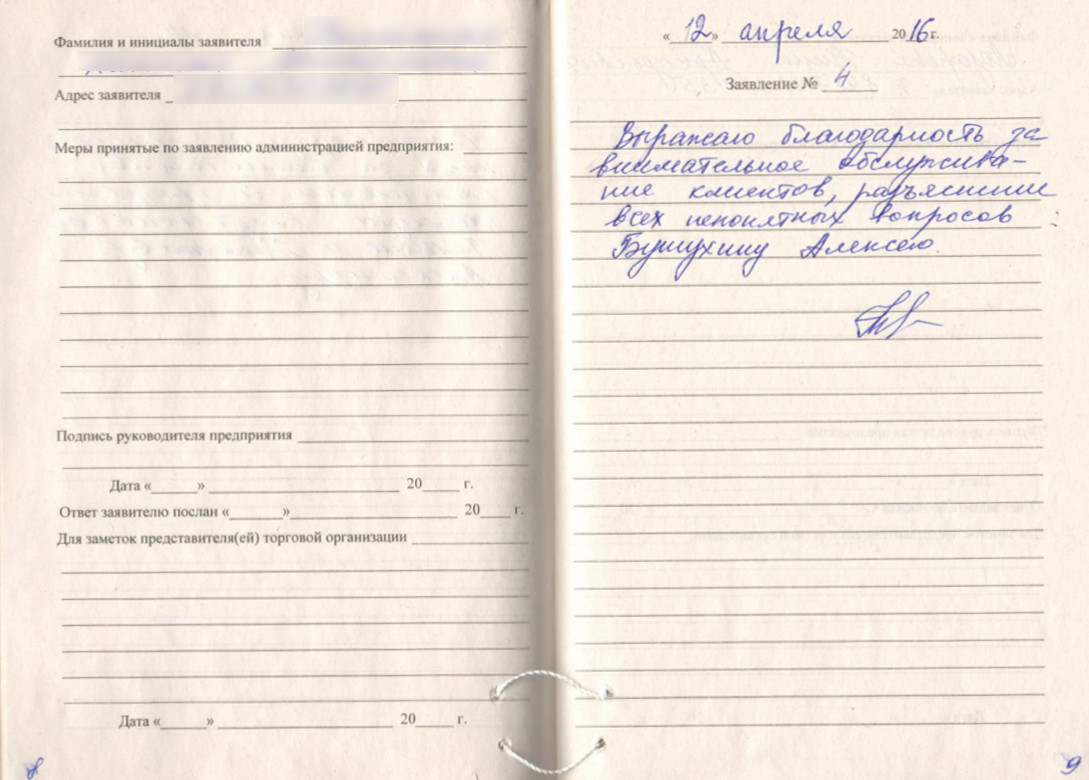 Фамилия и инициалы заявителя
Адрес заявителя
Меры принятые по заявлению администрацией предприятия:
Подпись руководителя предприятия
Дата «______» ____________ 20____ г.
Ответ заявителю послан «______» ____________ 20____ г.
Для заметок представителя(ей) торговой организации
Дата «______» ____________ 20____ г.
8
«12» апреля 2016 г.
Заявление № 4
Выражаю благодарность за
внимательное обслужива-
ние клиентов, разъяснение
всех непонятных вопросов :
Алексею.
9